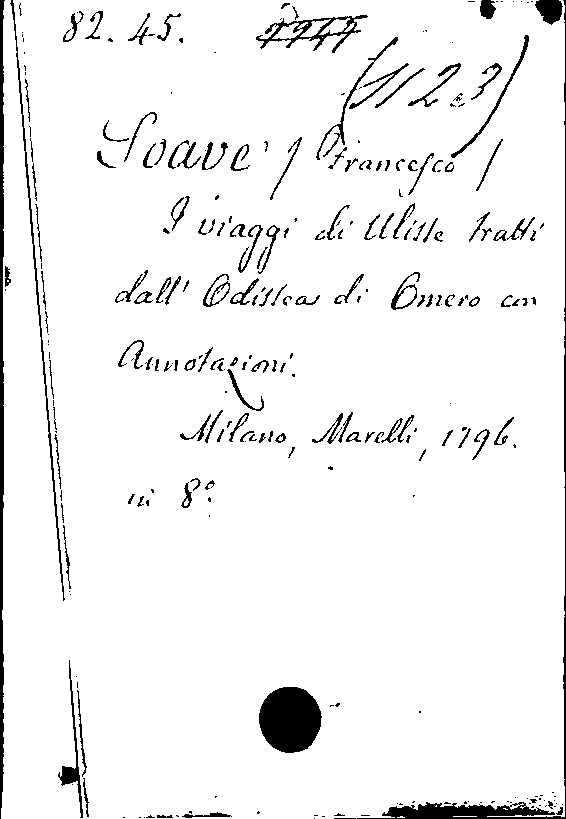 82. 45.
(S112e3)
Soave / Francesco /
I viaggi di Ulisse tratti
dall' Odissea di Omero con
Annotazioni.
Milano, Marelli, 1796.
in 8º.